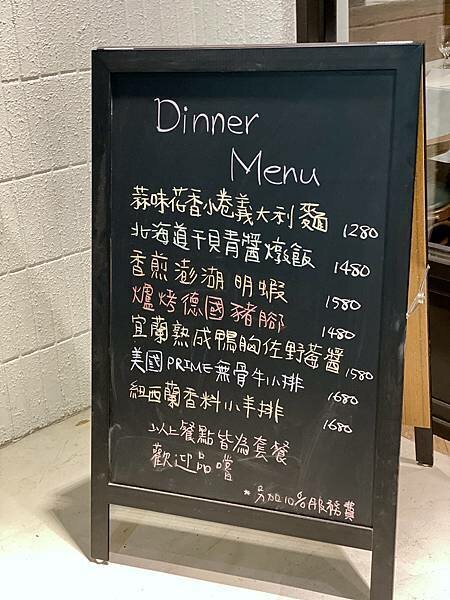 Dinner
Menu
蒜味花香小卷義大利麵 1280
北海道干貝青醬燉飯 1480
香煎澎湖明蝦 1580
爐烤德國豬腳 1480
宜蘭熟成鴨胸佐野莓醬 1580
美國PRIME無骨牛小排 1680
紐西蘭香料小羊排 1680
以上餐點皆為套餐
歡迎品嚐
*另加10%服務費